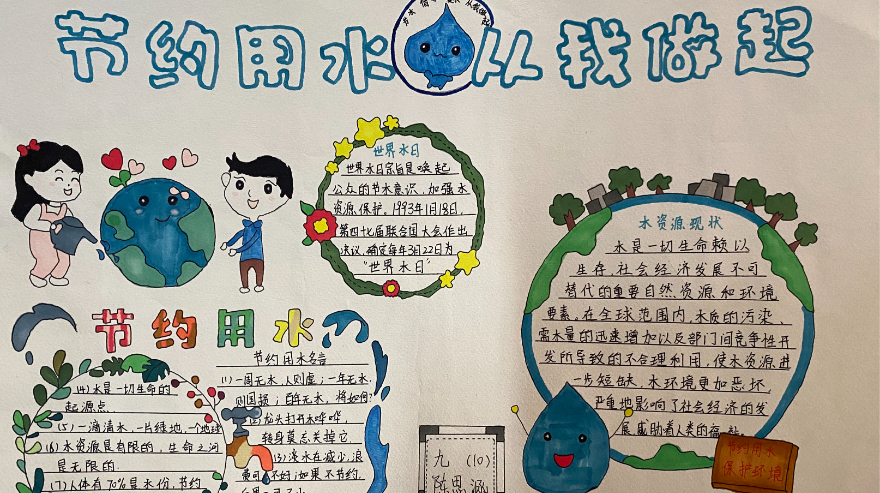 节约用水 从我做起
世界水日
世界水日宗旨是唤起
公众的节水意识，加强水
资源保护。1993年1月18日，
第四十七届联合国大会作出
决议，确定每年3月22日为
“世界水日”
水资源现状
水是一切生命赖以
生存，社会经济发展不可
替代的重要自然资源和环境
要素。在全球范围内，水质的污染、
需水量的迅速增加以及部门间竞争性开
发所导致的不合理利用，使水资源进
一步短缺，水环境更加恶坏，
严重地影响了社会经济的发
展，威胁着人类的福祉。
节约用水
节约用水名言
(1)一周无水，人则虚；一年无水，
则国损；百年无水，将如何？
(2)龙头打开水哗哗，
转身莫忘关掉它
(3)浅水在减少，浪
不好；如果不节约，
(4)水是一切生命的
起源点
(5)一滴清水，一片绿地，一个地球
(6)水资源是有限的，生命之河
是无限的.
(7)人体有70%是水份，节约
九 (10)
陈思涵
节约用水
保护环境